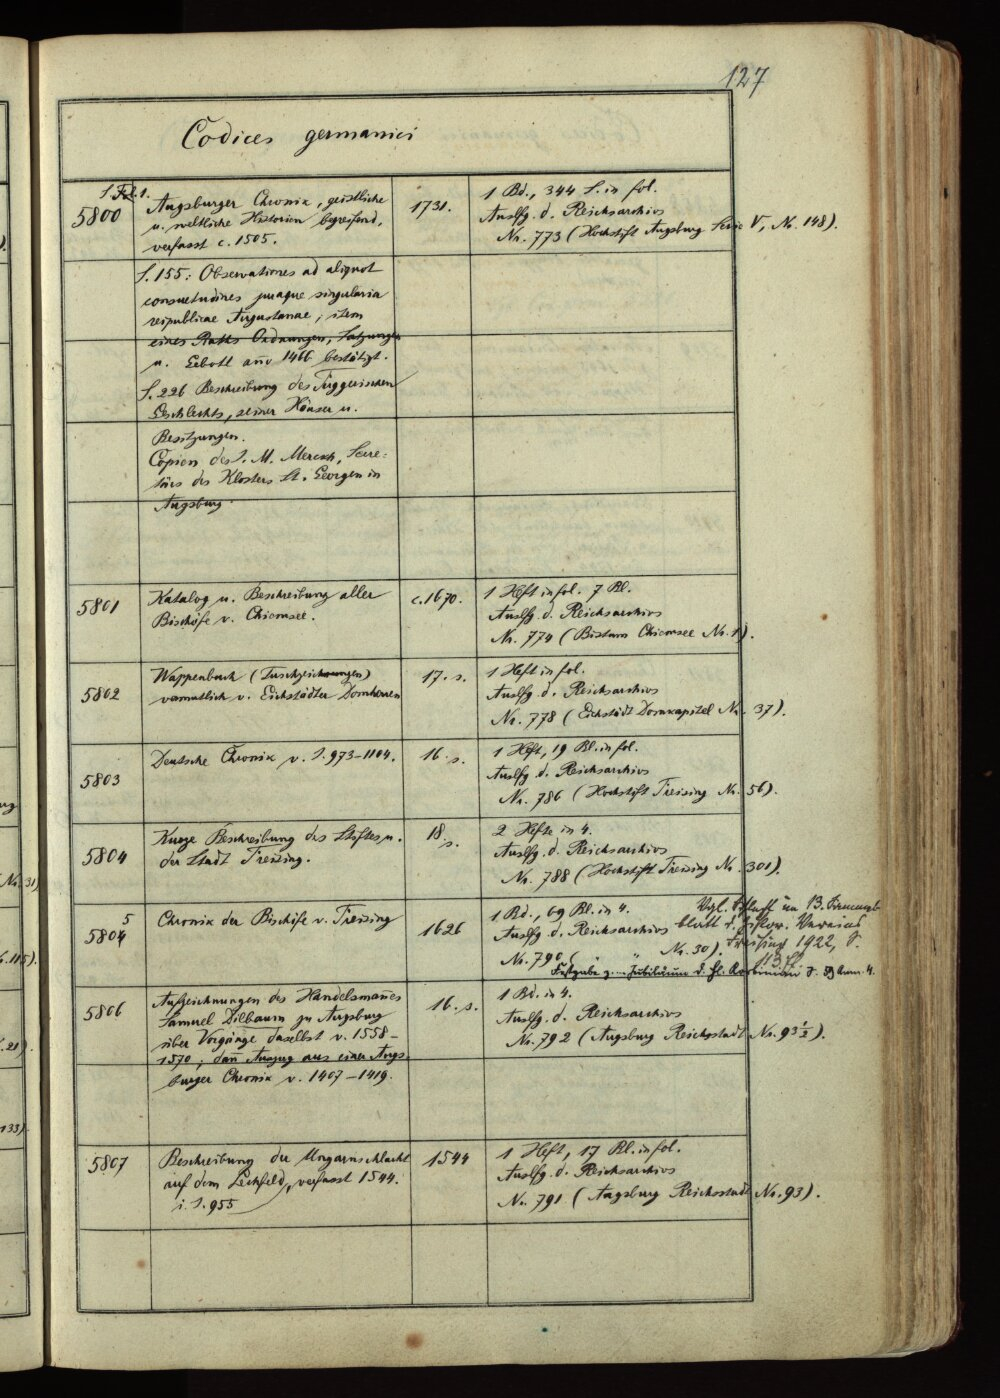 127
Codices germanici
5800
S. Fol. 1.
Augsburger Chronik, geistliche
u. weltliche Historien begreifend,
verfasst c. 1505.
1731.
1 Bd., 344 S. in fol.
Auslfg. d. Reichsarchivs
Nr. 773 (Hochstift Augsburg Serie V, Nr. 148).
S. 155: Observationes ad aliquot
consuetudines juraque singularia
reipublicae Augustanae; item
eines Raths Ordnungen, Satzungen
u. Gebott anno 1466 bestätigt.
S. 226 Beschreibung des Fuggerischen
Geschlechts, seiner Häuser u.
Besitzungen.
Copien des J. M. Merckh, Secre-
tärs des Klosters St. Georgen in
Augsburg.
5801
Katalog u. Beschreibung aller
Bischöfe v. Chiemsee.
c. 1670.
1 Heft in fol. 7 Bl.
Auslfg. d. Reichsarchivs
Nr. 774 (Bistum Chiemsee Nr. 1).
5802
Wappenbuch (Tuschzeichnungen)
vermutlich v. Eichstädter Domherren
17. s.
1 Heft in fol.
Auslfg. d. Reichsarchivs
Nr. 778 (Eichstädt Domkapitel Nr. 37).
5803
Deutsche Chronik v. J. 973–1104.
16. s.
1 Heft, 19 Bl. in fol.
Auslfg. d. Reichsarchivs
Nr. 786 (Hochstift Freising Nr. 56).
5804
Kurze Beschreibung des Stiftes u.
der Stadt Freising.
18. s.
2 Hefte in 4.
Auslfg. d. Reichsarchivs
Nr. 788 (Hochstift Freising Nr. 301).
5
5804
Chronik der Bischöfe v. Freising
1626
1 Bd., 69 Bl. in 4.
Auslfg. d. Reichsarchivs
Nr. 790 ( " Nr. 30).
Vgl. im 13. Sammel
blatt d. Histor. Vereins
Freising 1922, S.
113 ff
Festgabe z. Jubiläum d. hl. Korbinian S. Anm. 4.
5806
Aufzeichnungen des Handelsmannes
Samuel Dilbaum zu Augsburg
über Vorgänge daselbst v. 1558–
1570; dann Auszug aus einer Augs-
burger Chronik v. 1407–1419.
16. s.
1 Bd. in 4.
Auslfg. d. Reichsarchivs
Nr. 792 (Augsburg Reichsstadt Nr. 93 1/2).
5807
Beschreibung der Ungarnschlacht
auf dem Lechfeld, verfasst 1544.
i. J. 955
1544
1 Heft, 17 Bl. in fol.
Auslfg. d. Reichsarchivs
Nr. 791 (Augsburg Reichsstadt Nr. 93).